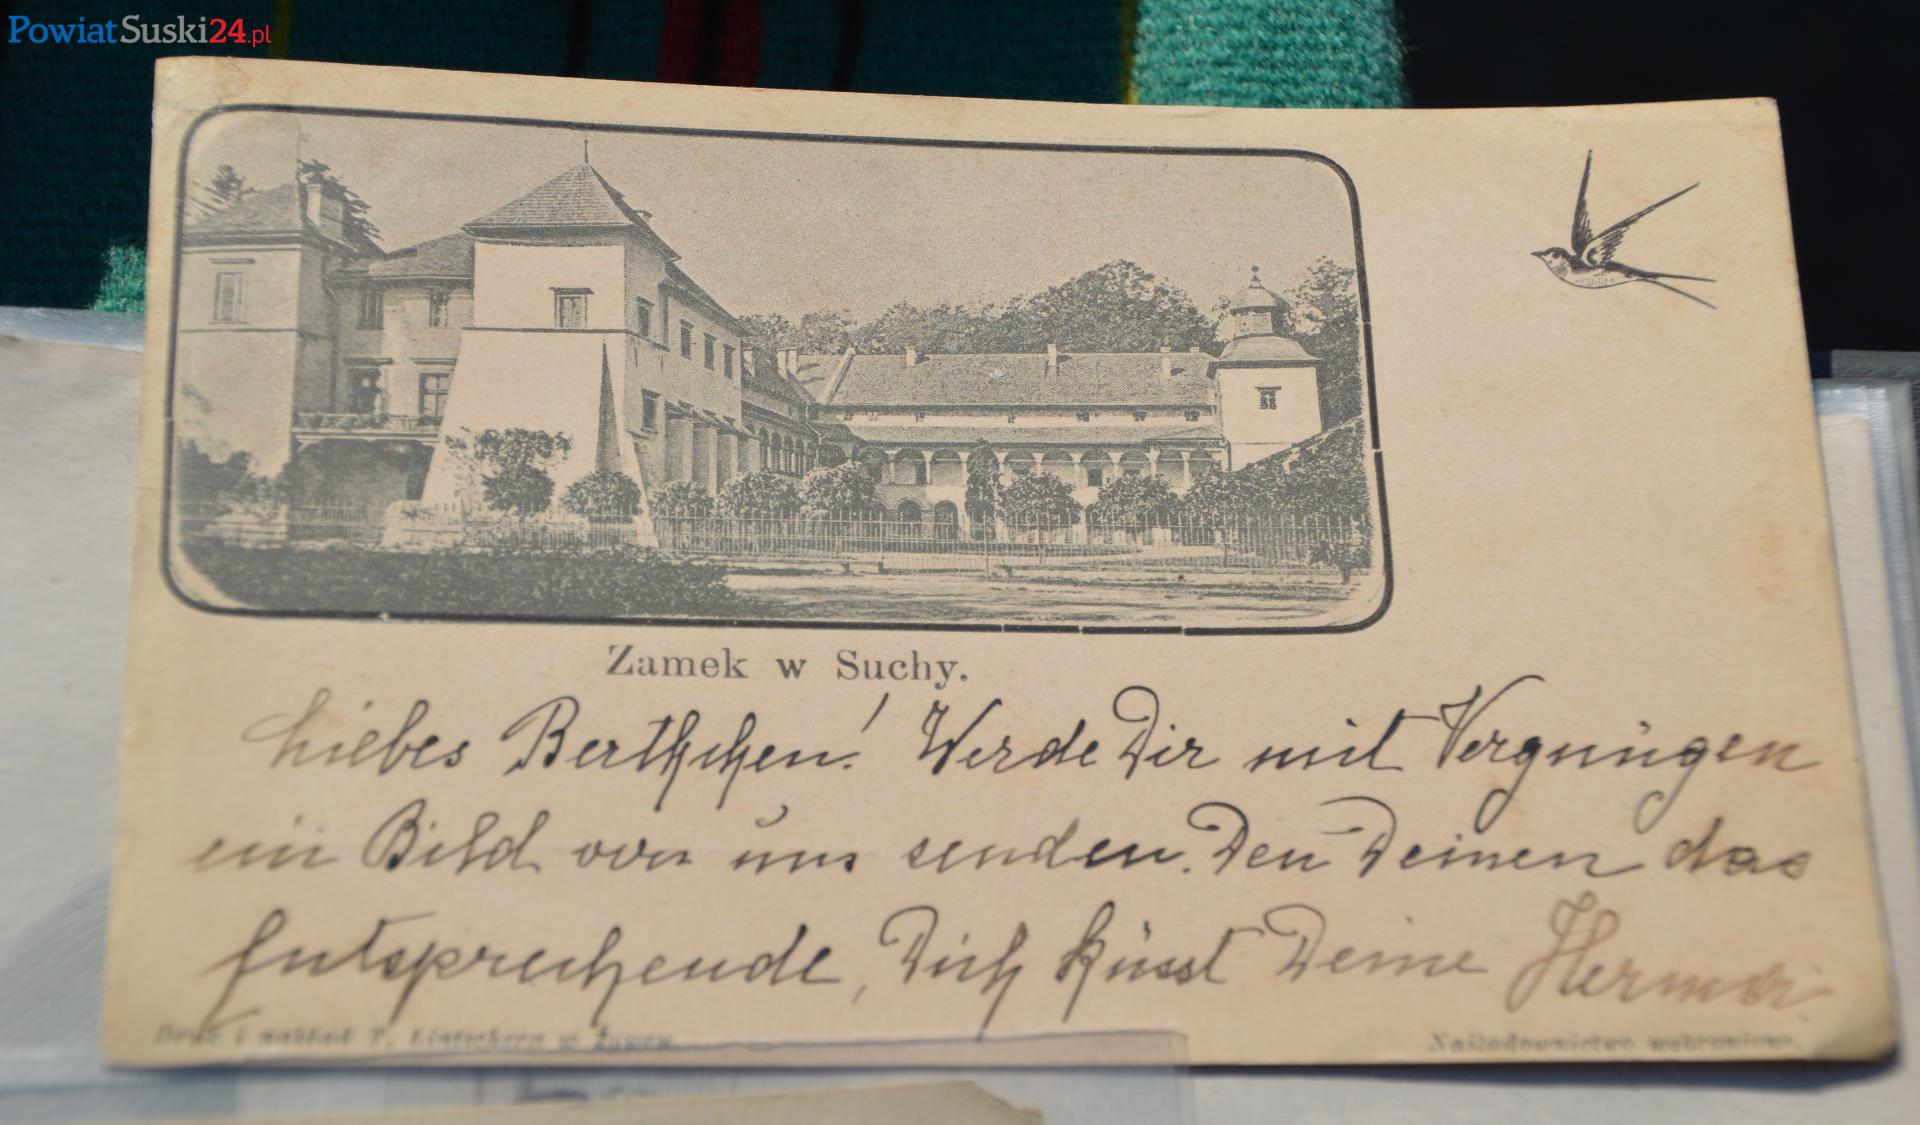 PowiatSuski24.pl
Zamek w Suchy.
Liebes Berthchen! Werde Dir mit Vergnügen
ein Bild von uns senden. Den Deinen das
Entsprechende, Dich küsst Deine
Druk i nakład T. w Żywcu.
Nakładownictwo wzbronione.